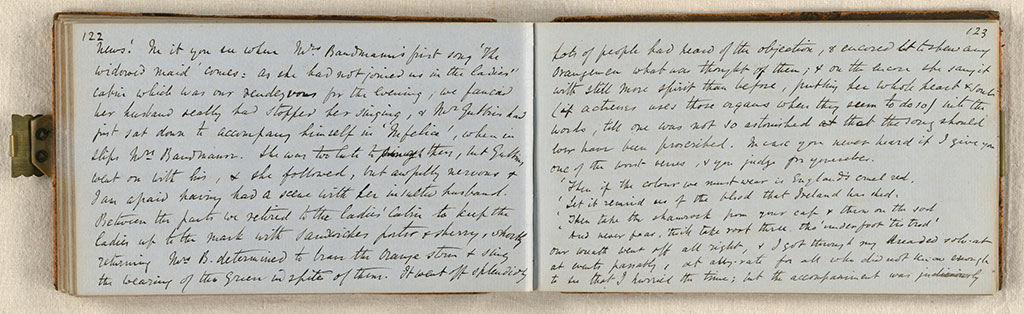 122
News! In it you see where Mrs Bandmann's first song 'The
widowed maid' comes: as she had not joined us in the Ladies'
cabin which was our rendezvous for the evening, we fancied
her husband really had stopped her singing, & Mr Gubbins had
just sat down to accompany himself in 'Angelica', when in
slips Mrs Bandmann. She was too late to then, but Gubbins
went on with his, & she followed, but awfully nervous &
I am afraid having had a scene with her husband.
Between the parts we retired to the Ladies' Cabin to keep the
Ladies up to the mark with sandwiches porter & sherry, & shortly
returning Mrs B. determined to brave the orange storm & sing
the wearing of the Green in spite of them. It went off splendidly
123
Lots of people had heard of the objection, & encored it to shew any
Orangemen what was thought of them; & on the encore she sang it
with still more spirit than before, putting her whole heart & soul
(if actresses uses those organs when they seem to do so) into the
words, till one was not so astonished at that the song should
have been proscribed. In case you never heard it I give you
one of the worst verses, & you judge for yourselves.
'Then if the colour we must wear is England's cruel red.
'Let it remind us of the blood that Ireland has shed.
'Then take the shamrock from your cap & throw on the sod
'And never fear, 'twill take root there, tho' under foot 'tis trod'
Our wreath went off all right, & I got through my dreaded solo at
at waits passably, at any rate for all who did not know enough
to see that I hurried the time; but the accompaniment was judiciously